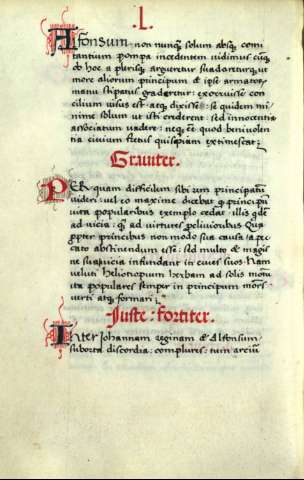 .L.
Alfonsum non nunq̃ solum absq̃ comi
tantium pompa incedentem uidimus cuq̃
ob hoc a plerisq̃ argueretur suadereturq̃, ut
more aliorum principum & ipse armator̃
manu stipatus graderetur: exorruisse con
cilium uisus est. atq̃ dixisse: se quidem mi
nime solum ut isti crederent: sed innocentia
associatum uadere: neq̃ e͂ quod beniuolen
tia ciuium fretus quispiam extimescat;
Grauiter.
PER quam difficilem sibi rem principatũ
uideri: uel eo maxime dicebat q̃ principũ
uita popularibus exemplo cedat. illis q̃de
ad uicia: q̃ ad uirtutes procliuioribus Qua
ppter principibus non modo sua causa a pec
cato abstinendum esse: sed multo & magis
ne sua uicia infundant in ciues suos. Nam
ueluti heliotropium herbam ad solis motũ
ita populares semper in principum mors̃
uerti atq̃ formari;
Iuste: fortiter.
Inter Johannam reginam & Alfonsum
suborta discordia: complures: tum arciũ